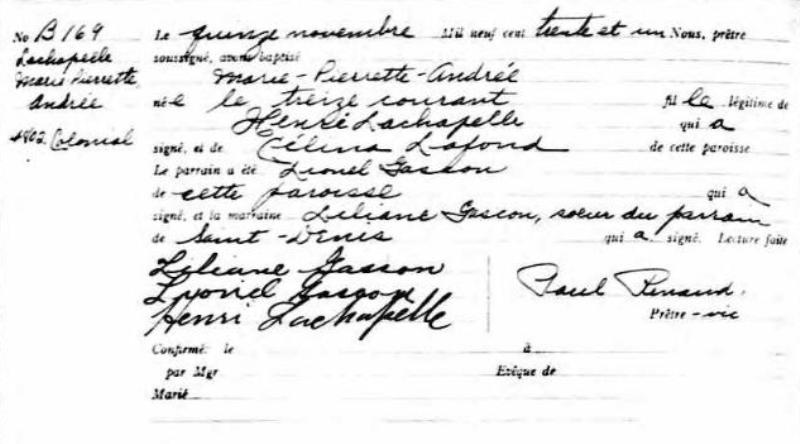 No B 169
Lachapelle
Marie Pierrette
Andrée
4802 Colonial
Le quinze novembre Mil neuf cent trente et un Nous, prêtre
soussigné, avons baptisé
Marie-Pierrette-Andrée
né e le treize courant fil le légitime de
Henri Lachapelle qui a
signé, et de Célina Lafond de cette paroisse
Le parrain a été Lionel Gasson
de cette paroisse qui a
signé, et la marraine Liliane Gascon, soeur du parrain
de Saint-Denis qui a signé. Lecture faite
Liliane Gasson
Lyonel Gascon
Henri Lachapelle
Paul Renaud.
Prêtre - vic
Confirmé: le à
par Mgr Evêque de
Marié